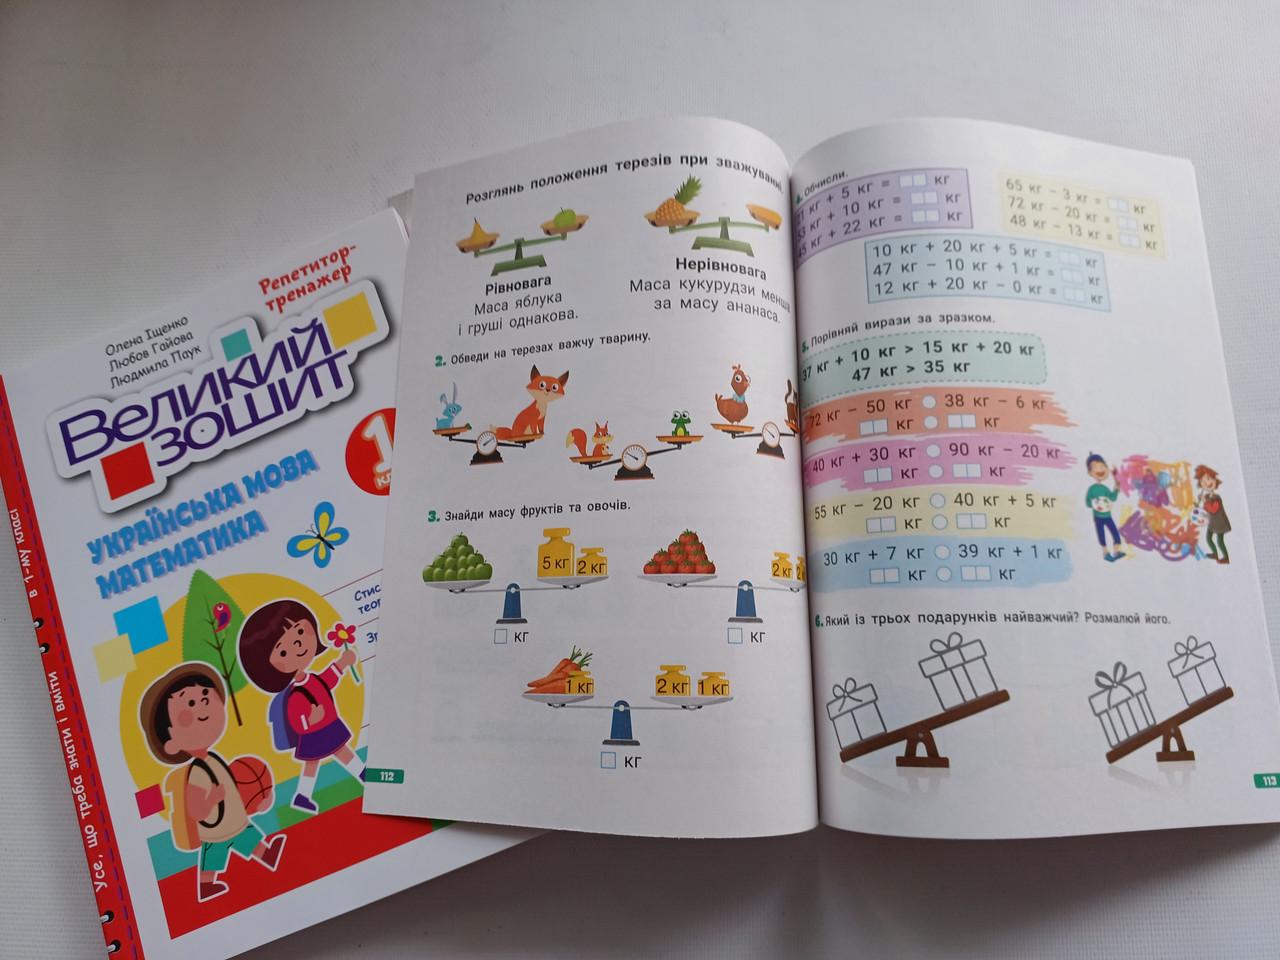 Олена Іщенко
Любов Гайова
Людмила Паук
Репетитор-
тренажер
Великий
зошит
1
УКРАЇНСЬКА МОВА
МАТЕМАТИКА
Усе, що треба знати і вміти в 1-му класі
Розглянь положення терезів при зважуванні.
Рівновага
Маса яблука
і груші однакова.
Нерівновага
Маса кукурудзи менша
за масу ананаса.
2. Обведи на терезах важчу тварину.
3. Знайди масу фруктів та овочів.
5 кг 2 кг
кг
2 кг
кг
1 кг 2 кг 1 кг
кг
112
Обчисли.
кг + 5 кг = кг
кг + 10 кг = кг
кг + 22 кг = кг
65 кг – 3 кг = кг
72 кг – 20 кг = кг
48 кг – 13 кг = кг
10 кг + 20 кг + 5 кг = кг
47 кг – 10 кг + 1 кг = кг
12 кг + 20 кг – 0 кг = кг
5. Порівняй вирази за зразком.
37 кг + 10 кг > 15 кг + 20 кг
47 кг > 35 кг
72 кг – 50 кг 38 кг – 6 кг
кг кг
40 кг + 30 кг 90 кг – 20 кг
кг кг
55 кг – 20 кг 40 кг + 5 кг
кг кг
30 кг + 7 кг 39 кг + 1 кг
кг кг
6. Який із трьох подарунків найважчий? Розмалюй його.
113